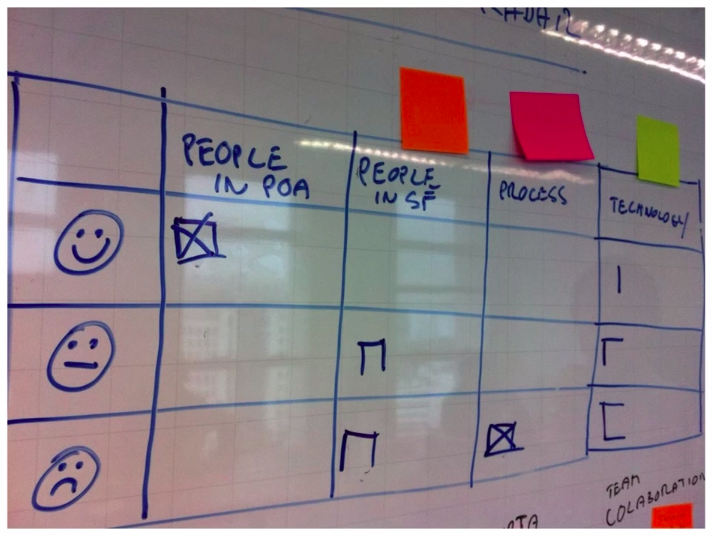 PEOPLE
IN POA
PEOPLE
IN SF
PROCESS
TECHNOLOGY
TEAM
COLABORATION